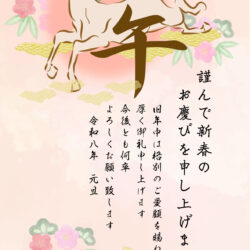 午
謹んで新春の
お慶びを申し上げま
旧年中は格別のご愛顧を賜わ
厚く御礼申し上げます
今後とも何卒
よろしくお願い致します
令和八年 元旦